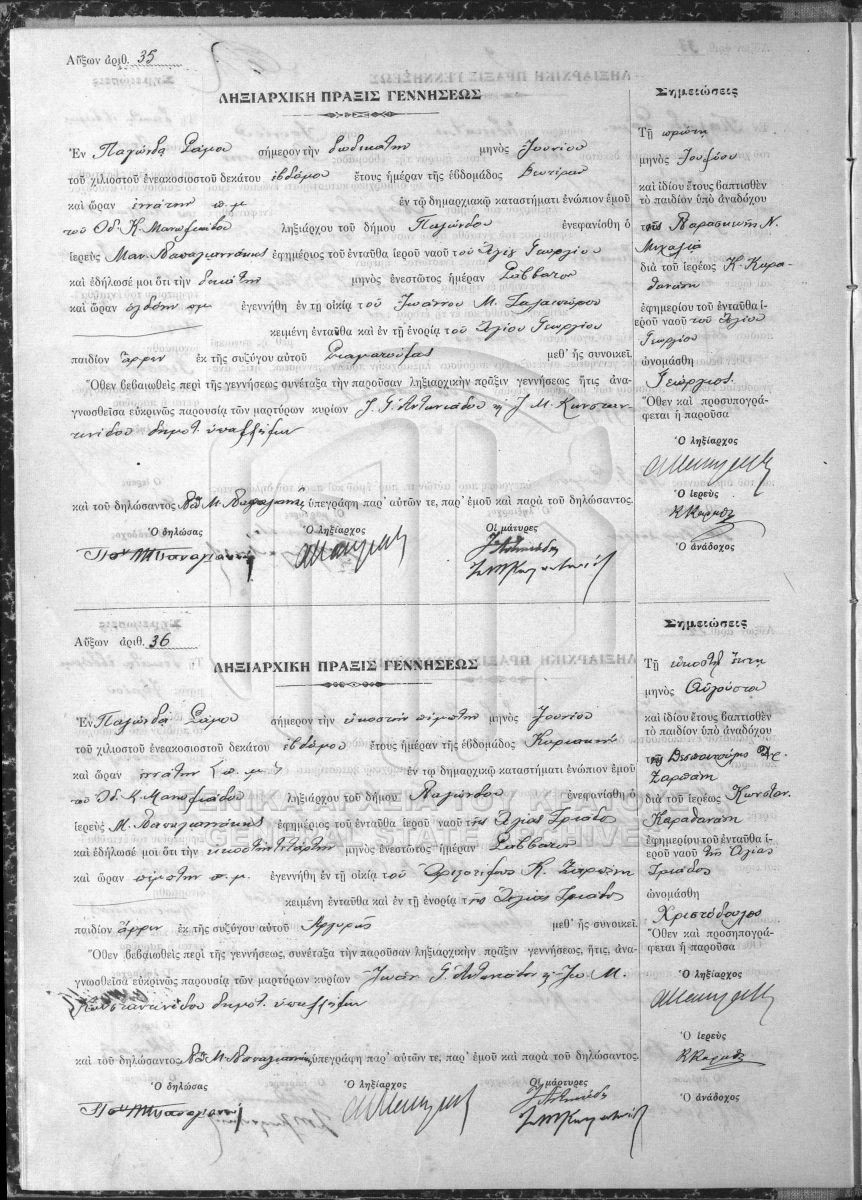 Αὔξων ἀριθ. 35
ΛΗΞΙΑΡΧΙΚΗ ΠΡΑΞΙΣ ΓΕΝΝΗΣΕΩΣ
Ἐν Παγώνδᾳ Σάμου σήμερον τὴν δωδεκάτην μηνὸς Ἰουνίου
τοῦ χιλιοστοῦ ἐνεακοσιοστοῦ δεκάτου ἑβδόμου ἔτους ἡμέραν τῆς ἑβδομάδος Δευτέραν
καὶ ὥραν ἐννάτην π.μ ἐν τῷ δημαρχιακῷ καταστήματι ἐνώπιον ἐμοῦ
τοῦ Ὀδ. Κ. ληξιάρχου τοῦ δήμου Παγώνδου ἐνεφανίσθη ὁ
ἱερεὺς Μαν. Παπαγιαννάκης ἐφημέριος τοῦ ἐνταῦθα ἱεροῦ ναοῦ τοῦ Ἁγίου Γεωργίου
καὶ ἐδήλωσέ μοι ὅτι τὴν δεκάτην μηνὸς ἐνεστῶτος ἡμέραν Σάββατον
καὶ ὥραν ὀγδόην πμ ἐγεννήθη ἐν τῃ οἰκίᾳ τοῦ Ἰωάννου Μ.
κειμένῃ ἐνταῦθα καὶ ἐν τῇ ἐνορίᾳ τοῦ Ἁγίου Γεωργίου
παιδίον ἄρρεν ἐκ τῆς συζύγου αὐτοῦ μεθ᾽ ἧς συνοικεῖ.
Ὅθεν βεβαιωθεὶς περὶ τῆς γεννήσεως συνέταξα τὴν παροῦσαν ληξιαρχικὴν πρᾶξιν γεννήσεως ἥτις ἀνα-
γνωσθεῖσα εὐκρινῶς παρουσίᾳ τῶν μαρτύρων κυρίων Ἰ. Γ. Ἀντωνιάδου κ Ἰ. Μ. Κωνσταν
τινίδου δημοτ. ὑπαλλήλων
καὶ τοῦ δηλώσαντος ὑπεγράφη παρ᾽ αὐτῶν τε, παρ᾽ ἐμοῦ καὶ παρὰ τοῦ δηλώσαντος.
Ὁ δηλώσας Ὁ ληξίαρχος Οἱ μάτυρες
Σημειώσεις
Τῇ πρώτῃ
μηνὸς Ἰουλίου
καὶ ἰδίου ἔτους βαπτισθὲν
τὸ παιδίον ὑπὸ ἀναδόχου
τῆς Παρασκευῆς Ν.
διὰ τοῦ ἱερέως Κ. Καρα-
θανάση
ἐφημερίου τοῦ ἐνταῦθα ἱ-
εροῦ ναοῦ τοῦ Ἁγίου
Γεωργίου
ὠνομάσθη
Γεώργιος.
Ὅθεν καὶ προσυπογρά-
φεται ἡ παροῦσα
Ὁ ληξίαρχος
Ὁ ἱερεὺς
Ὁ ἀνάδοχος
Αὔξων ἀριθ. 36
ΛΗΞΙΑΡΧΙΚΗ ΠΡΑΞΙΣ ΓΕΝΝΗΣΕΩΣ
Ἐν Παγώνδᾳ Σάμου σήμερον τὴν εἰκοστὴν πέμπτην μηνὸς Ἰουνίου
τοῦ χιλιοστοῦ ἐνεακοσιοστοῦ δεκάτου ἑβδόμου ἔτους ἡμέραν τῆς ἑβδομάδος Κυριακὴν
καὶ ὥραν ἐννάτην π.μ ἐν τῳ δημαρχικῷ καταστήματι ἐνώπιον ἐμοῦ
τοῦ Ὀδ. Κ. ληξιάρχου τοῦ δήμου Παγώνδου ἐνεφανίσθη ὁ
ἱερεὺς Μ. Παπαγιαννάκης ἐφημέριος τοῦ ἐνταῦθα ἱεροῦ ναοῦ τῆς Ἁγίας Τριάδος
καὶ ἐδήλωσέ μοι ὅτι τὴν εἰκοστὴν τετάρτην μηνὸς ἐνεστῶτος ἡμέραν Σάββατον
καὶ ὥραν πέμπτην π.μ. ἐγεννήθη ἐν τῇ οἰκίᾳ τοῦ Κ. Ζαρπάνη
κειμένῃ ἐνταῦθα καὶ ἐν τῇ ἐνορίᾳ τῆς Ἁγίας Τριάδος
παιδίον ἄρρεν ἐκ τῆς συζύγου αὐτοῦ Ἀργυρῆς μεθ᾽ ἧς συνοικεῖ.
Ὅθεν βεβαιωθεὶς περὶ τῆς γεννήσεως, συνέταξα τὴν παροῦσαν ληξιαρχικὴν πρᾶξιν γεννήσεως, ἥτις, ἀνα-
γνωσθεῖσα εὐκρινῶς παρουσίᾳ τῶν μαρτύρων κυρίων Ἰωάν. Γ. Ἀντωνιάδου κ Ἰω Μ.
Κωνσταντινίδου δημοτ. ὑπαλλήλων
καὶ τοῦ δηλώσαντος ὑπεγράφη παρ᾽ αὐτῶν τε, παρ᾽ ἐμοῦ καὶ παρὰ τοῦ δηλώσαντος.
Ὁ δηλώσας Ὁ ληξίαρχος Οἱ μάρτυρες
Σημειώσεις
Τῇ εἰκοστῇ ἕκτῃ
μηνὸς Αὐγούστου
καὶ ἰδίου ἔτους βαπτισθὲν
τὸ παιδίον ὑπὸ ἀναδόχου
τῆς
Ζαρπάνη
διὰ τοῦ ἱερέως Κωνσταν.
Καραθανάση
ἐφημερίου τοῦ ἐνταῦθα ἱ-
εροῦ ναοῦ τῆς Ἁγίας
Τριάδος
ὠνομάσθη
Χριστόδουλος
Ὅθεν καὶ προσηπογρά-
φεται ἡ παροῦσα
Ὁ ληξίαρχος
Ὁ ἱερεὺς
Ὁ ἀνάδοχος
ΓΕΝΙΚΑ ΑΡΧΕΙΑ ΤΟΥ ΚΡΑΤΟΥΣ
GENERAL STATE ARCHIVES